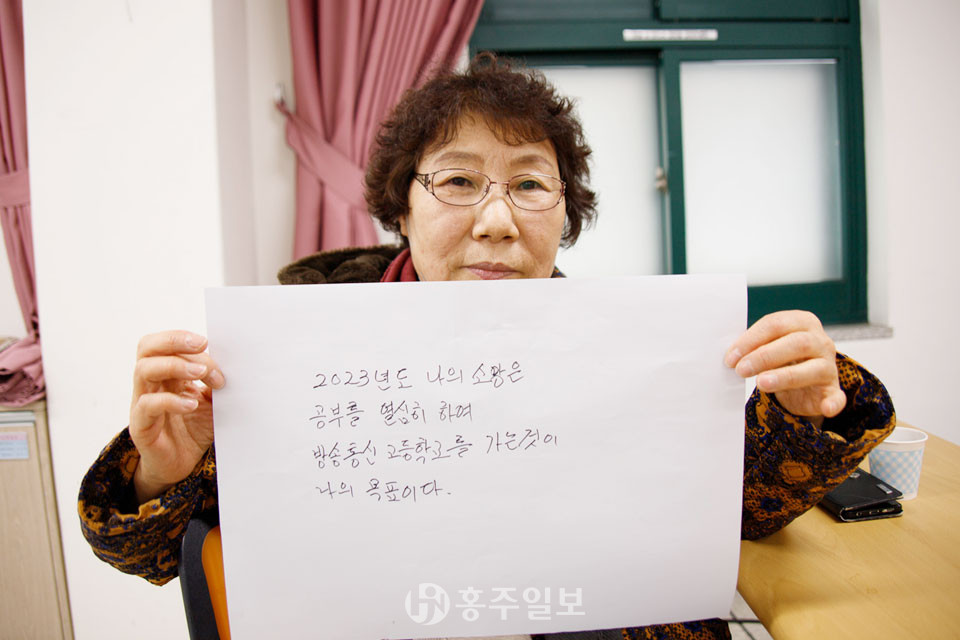 2023년도 나의 소망은
공부를 열심히 하여
방송통신 고등학교를 가는것이
나의 목표이다.
홍주일보